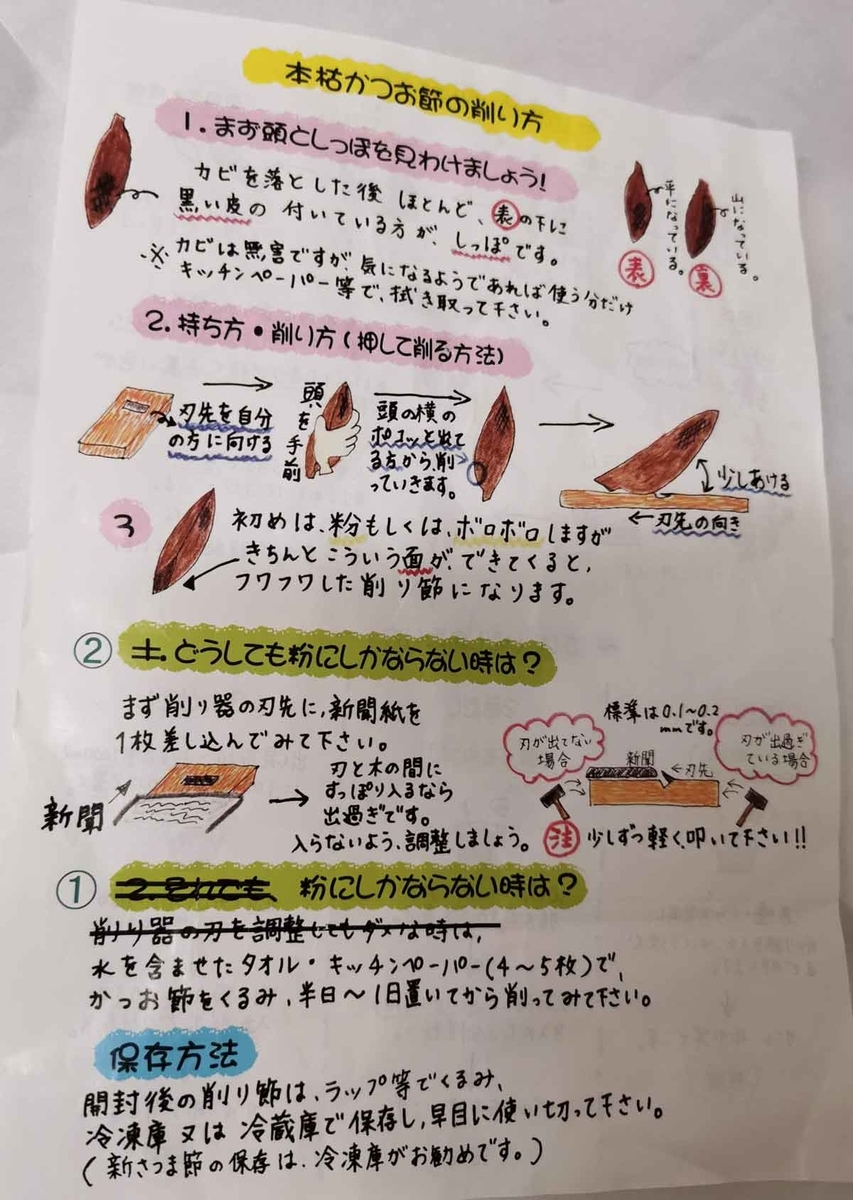 本枯かつお節の削り方
1.まず頭としっぽを見わけましょう!
カビを落とした後 ほとんど、表の下に
黒い皮の 付いている方が、しっぽです。
※カビは無害ですが、気になるようであれば使う分だけ
キッチンペーパー等で、拭き取って下さい。
平になっている。
表
山になっている。
裏
2.持ち方・削り方(押して削る方法)
刃先を自分
の方に向ける
頭を手前
頭の横の
ポコッと出て
る方から、削
っていきます。
少しあける
←刃先の向き
3
初めは、粉もしくは、ボロボロしますが
きちんとこういう面が、できてくると、
フワフワした削り節になります。
②
どうしても粉にしかならない時は?
まず削り器の刃先に、新聞紙を
1枚差し込んでみて下さい。
新聞
刃と木の間に
すっぽり入るなら
出過ぎです。
入らないよう、調整しましょう。
標準は0.1~0.2
mmです。
刃が出てない
場合
新聞
刃先
刃が出過ぎ
ている場合
注 少しずつ軽く、叩いて下さい!!
①
2.それでも、粉にしかならない時は?
削り器の刃を調整してもダメな時は、
水を含ませたタオル・キッチンペーパー(4~5枚)で、
かつお節をくるみ、半日~1日置いてから削ってみて下さい。
保存方法
開封後の削り節は、ラップ等でくるみ、
冷凍庫又は冷蔵庫で保存し、早目に使い切って下さい。
(新さつま節の保存は、冷凍庫がお勧めです。)